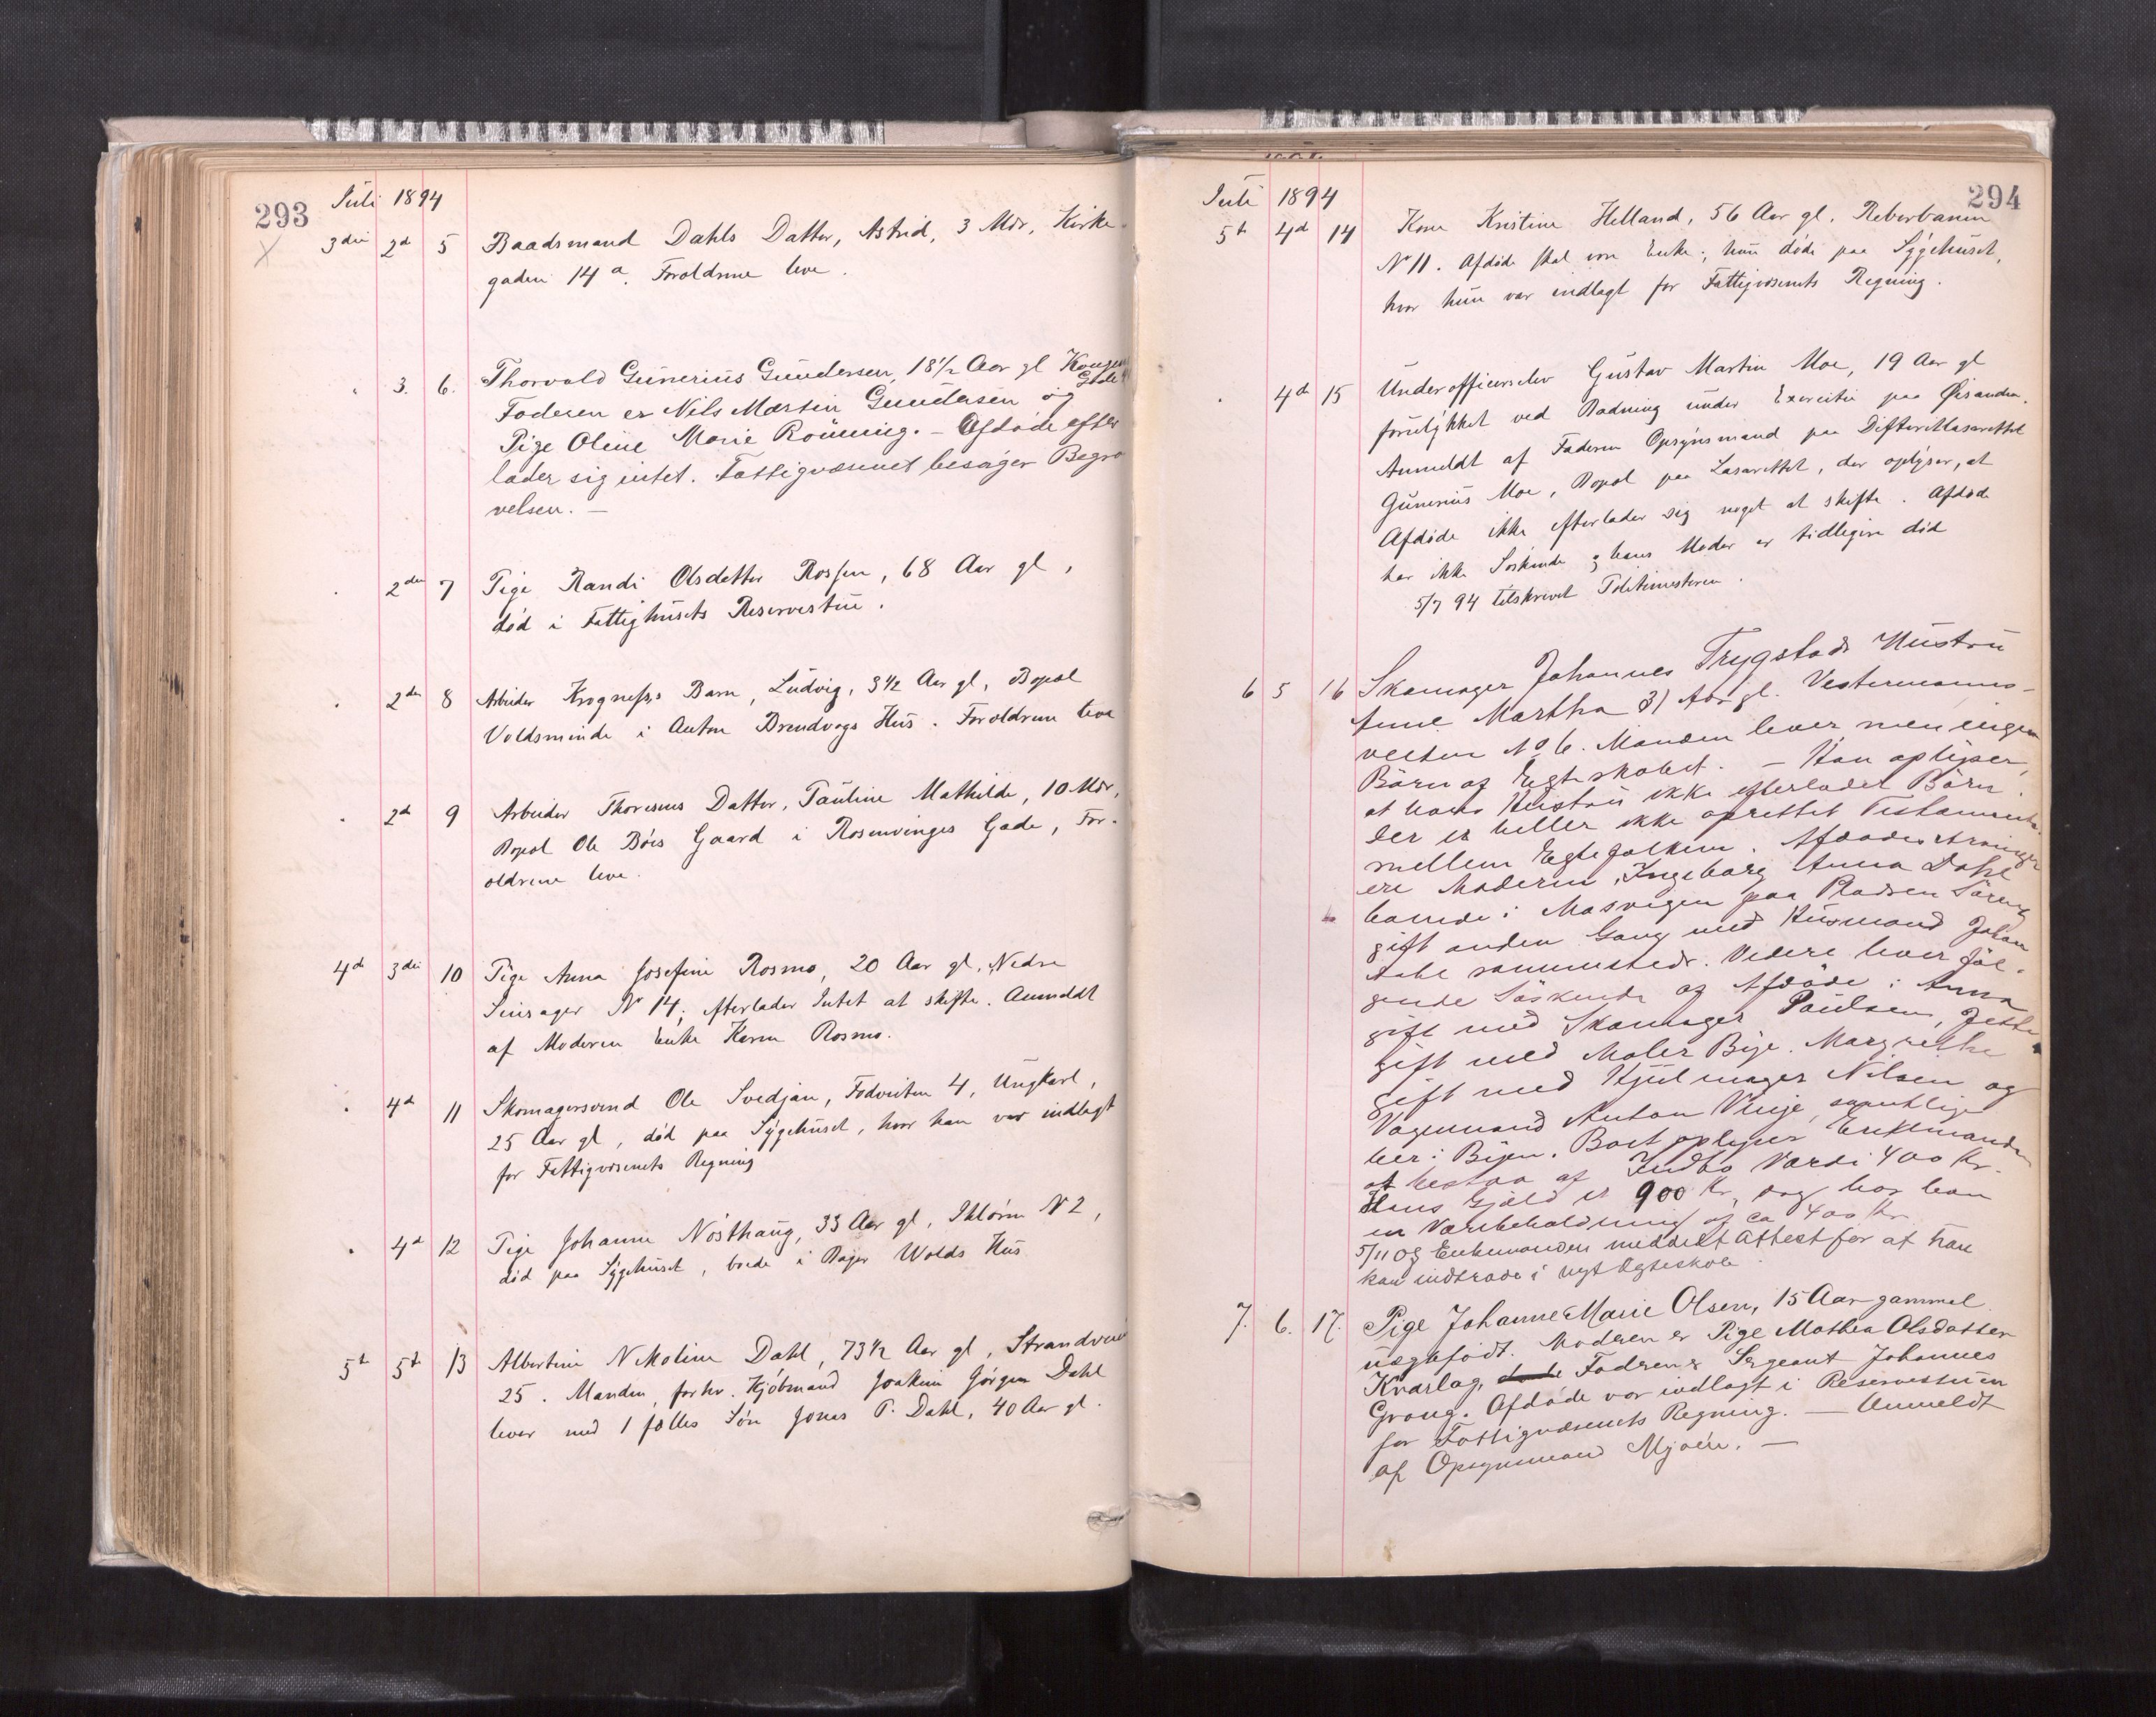 293
Juli 1894
3die 2d 5 Baadsmand Dahls Datter, Astrid, 3 Mdr, Kirke-
gaden 14 a. Forældrene leve.
3. 6. Thorvald Gunerius Gundersen, 18½ Aar gl Kongens
Gade
Faderen er Nils Martin Gundersen og
Pige Oline Marie Rönning. – Afdøde efter
lader sig intet. Fattigvæsenet besørger Begra
velsen. –
2den 7 Pige Randi Olsdatter Rossen, 68 Aar gl,
død i Fattighusets Reservestue.
2den 8 Arbeider Krogness's Barn, Ludvig, 3½ Aar gl, Bopæl
Voldsminde i Anton Brendvogs Hus. Forældrene leve
2d 9 Arbeider Thoresens Datter, Pauline Mathilde, 10 Mdr,
Bopæl Ole Böes Gaard i Rosenvinges Gade, For-
ældrene leve.
4d 3die 10 Pige Anna Josefine Rosmo, 20 Aar gl, Nedre
Singsager No 14; efterlader Intet at skifte. Anmeldt
af Moderen Enke Karen Rosmo.
4d 11 Skomagersvend Ole Svedjan, Fodveiten 4, Ungkarl,
25 Aar gl, død paa Sygehuset, hvor han var indlagt
for Fattigvæsenets Regning
4d 12 Pige Johanne Nösthaug, 33 Aar gl, Ihlören No 2,
død paa Sygehuset, boede i Bager Wolds Hus
5t 5t 13 Albertine Nikoline Dahl, 73½ Aar gl, Strandveien
25. Manden, forhv. Kjøbmand Joakim Jörgen Dahl
lever med 1 fælles Søn Jonas P. Dahl, 40 Aar gl.
294
Juli 1894
5t 4d 14 Kone Kristine Helland, 56 Aar gl. Reberbanen
No 11. Afdøde skal være Enke; hun døde paa Sygehuset,
hvor hun var indlagt for Fattigvæsenets Regning.
4d 15 Underofficerselev Gustav Martin Moe, 19 Aar gl
forulykket ved Badning under Exercitie paa Øisanden.
Anmeldt af Faderen Opsynsmand paa Difteritlasarettet
Gunerius Moe, Bopæl paa Lasarettet, der oplyser, at
Afdøde ikke efterlader sig noget at skifte. Afdøde
har ikke Søskende og hans Moder er tidligere død
5/7 94 tilskrevet Politimesteren.
6 5 16 Skomager Johannes Trygstads Hustru
Anne Martha 31 Aar gl. Vestermanns-
veiten No 6. Manden lever, men ingen
Børn af Egteskabet. – Han oplyser,
at hans Hustru ikke efterlader Børn.
der er heller ikke oprettet Testament
mellem Egtefolkene. Afdødes Arvinger
ere Moderen, Ingeborg Anna Dahl
boende i Mosvigen paa Pladsen
gift anden Gang med Husmand Johan
Dahl sammesteds. Videre lever føl-
gende Söskende af Afdöde: Anna
gift med Skomager Paulsen,
gift med Maler Bye. Margrethe
gift med Hjulmager Nilsen og
Vognmand Anton Vinje, samtlige
her i Byen. Boet oplyser Enkemanden
at bestaa af Indbo Værdi 400 Kr.
Hans Gjæld er 900 Kr, dog har han
en Varebeholdning af ca 400 Kr
5/11 og Enkemanden meddelt Attest for at han
kan indtræde i nyt Egteskab.
7. 6. 17. Pige Johanne Marie Olsen, 15 Aar gammel
uægtefödt. Moderen er Pige Mathea Olsdatter
Kvarlag, Faderen er Sergeant Johannes
Grong. Afdøde var indlagt i Reservestuen
for Fattigvæsenets Regning. – Anmeldt
af Opsynsmand Mjøen. –